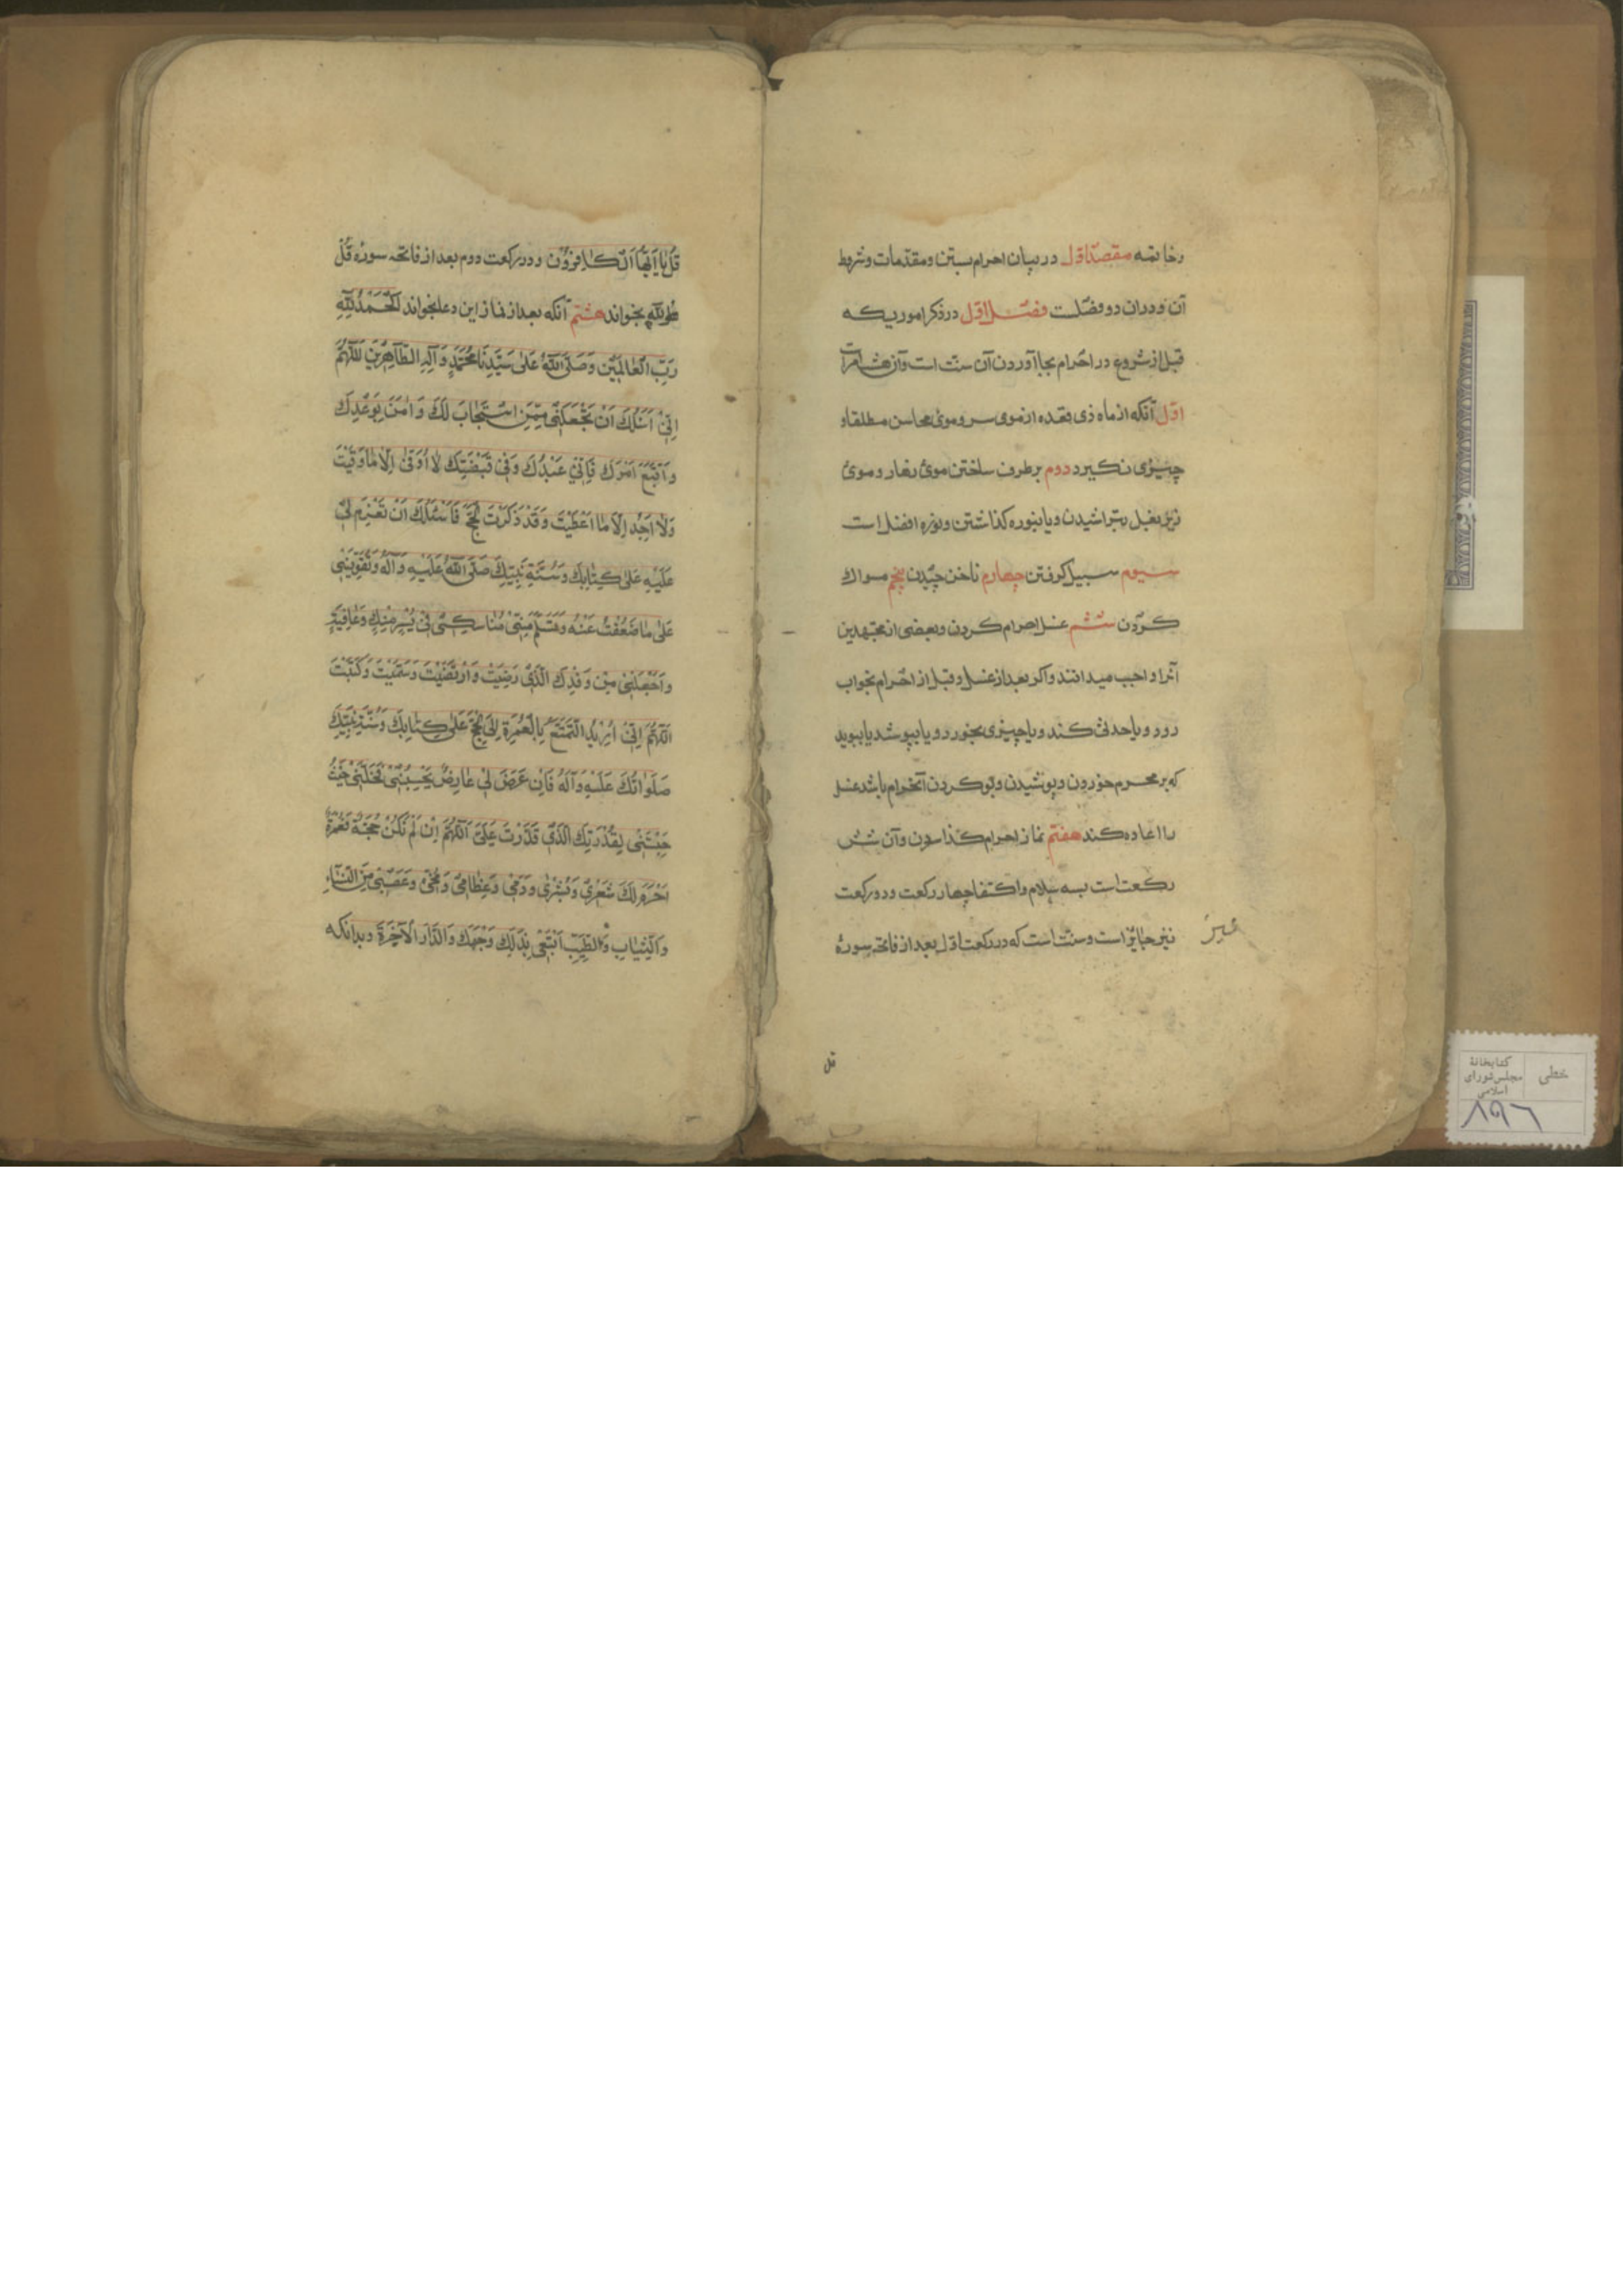 وخاتمه مقصد اول در بیان احرام بستن ومقدمات وشروط
آن ودران دو فصلست فصل اول در ذکر اموریکه
قبل از شروع در احرام بجا آوردن آن سنت است وآن هشت امرات
اول آنکه از ماه ذی قعده از موی سر وموی محاسن مطلقاو
چیزی نگیرد دوم برطرف ساختن موی زهار وموی
زیر بغل بتراشیدن ویا بنوره گذاشتن ونوره افضل است
سیوم سبیل گرفتن چهارم ناخن چیدن پنجم مسواك
کردن ششم غسل احرام کردن وبعضی از مجتهدین
آنرا واجب میدانند واکر بعد از غسل وقبل از احرام بخواب
رود ویا حدثی کند ویا چیزی بخورد ویا بپوشد یا ببوید
که بر محرم خوردن وپوشیدن وبو کردن آن حرام باشد غسل
را اعاده کند هفتم نماز احرام گذاردن وآن شش
رکعت است بسه سلام واکتفا چهار رکعت ودو رکعت
نیز جایز است وسنت است که در رکعت اول بعد از فاتحه سورهٔ
قل
قُلْ یَا اَیُّهَا الْکَافِرُوْن ودر رکعت دوم بعد از فاتحه سوره قُلْ
هُوَ اللّٰه بخواند هشتم آنکه بعد از نماز این دعا بخواند اَلْحَمْدُ لِلّٰهِ
رَبِّ الْعَالَمِیْنَ وَصَلَّی اللّٰهُ عَلٰی سَیِّدِنَا مُحَمَّدٍ وَآلِهِ الطَّاهِرِیْنَ اَللّٰهُمَّ
اِنِّیْ اَسْئَلُكَ اَنْ تَجْعَلَنِیْ مِمَّنِ اسْتَجَابَ لَكَ وَاٰمَنَ بِوَعْدِكَ
وَاتَّبَعَ اَمْرَكَ فَاِنِّیْ عَبْدُكَ وَفِیْ قَبْضَتِكَ لَا اُوْقٰی اِلَّا مَا وَقَیْتَ
وَلَا اَجِدُ اِلَّا مَا اَعْطَیْتَ وَقَدْ ذَکَرْتَ الْحَجَّ فَاَسْئَلُكَ اَنْ تَعْزِمَ لِیْ
عَلَیْهِ عَلٰی کِتَابِكَ وَسُنَّةِ نَبِیِّكَ صَلَّی اللّٰهُ عَلَیْهِ وَآلِهِ وَتُقَوِّیَنِیْ
عَلٰی مَا ضَعُفْتُ عَنْهُ وَتَسَلَّمَ مِنِّیْ مَنَاسِکِیْ فِیْ یُسْرٍ مِنْكَ وَعَافِیَةٍ
وَاجْعَلْنِیْ مِنْ وَفْدِكَ الَّذِیْ رَضِیْتَ وَارْتَضَیْتَ وَسَمَّیْتَ وَکَتَبْتَ
اَللّٰهُمَّ اِنِّیْ اُرِیْدُ التَّمَتُّعَ بِالْعُمْرَةِ اِلَی الْحَجِّ عَلٰی کِتَابِكَ وَسُنَّةِ نَبِیِّكَ
صَلَوَاتُكَ عَلَیْهِ وَآلِهِ فَاِنْ عَرَضَ لِیْ عَارِضٌ یَحْبِسُنِیْ فَحُلَّنِیْ حَیْثُ
حَبَسْتَنِیْ لِقَدَرِكَ الَّذِیْ قَدَّرْتَ عَلَیَّ اَللّٰهُمَّ اِنْ لَمْ تَکُنْ حُجَّةً فَعُمْرَةً
اَحْرَمَ لَكَ شَعْرِیْ وَبَشَرِیْ وَدَمِیْ وَعِظَامِیْ وَمُخِّیْ وَعَصَبِیْ مِنَ النِّسَاءِ
وَالثِّیَابِ وَالطِّیْبِ اَبْتَغِیْ بِذٰلِكَ وَجْهَكَ وَالدَّارَ الْآخِرَةَ وبدانکه
خطی
کتابخانهٔ
مجلس شورای
اسلامی
۸۹۶